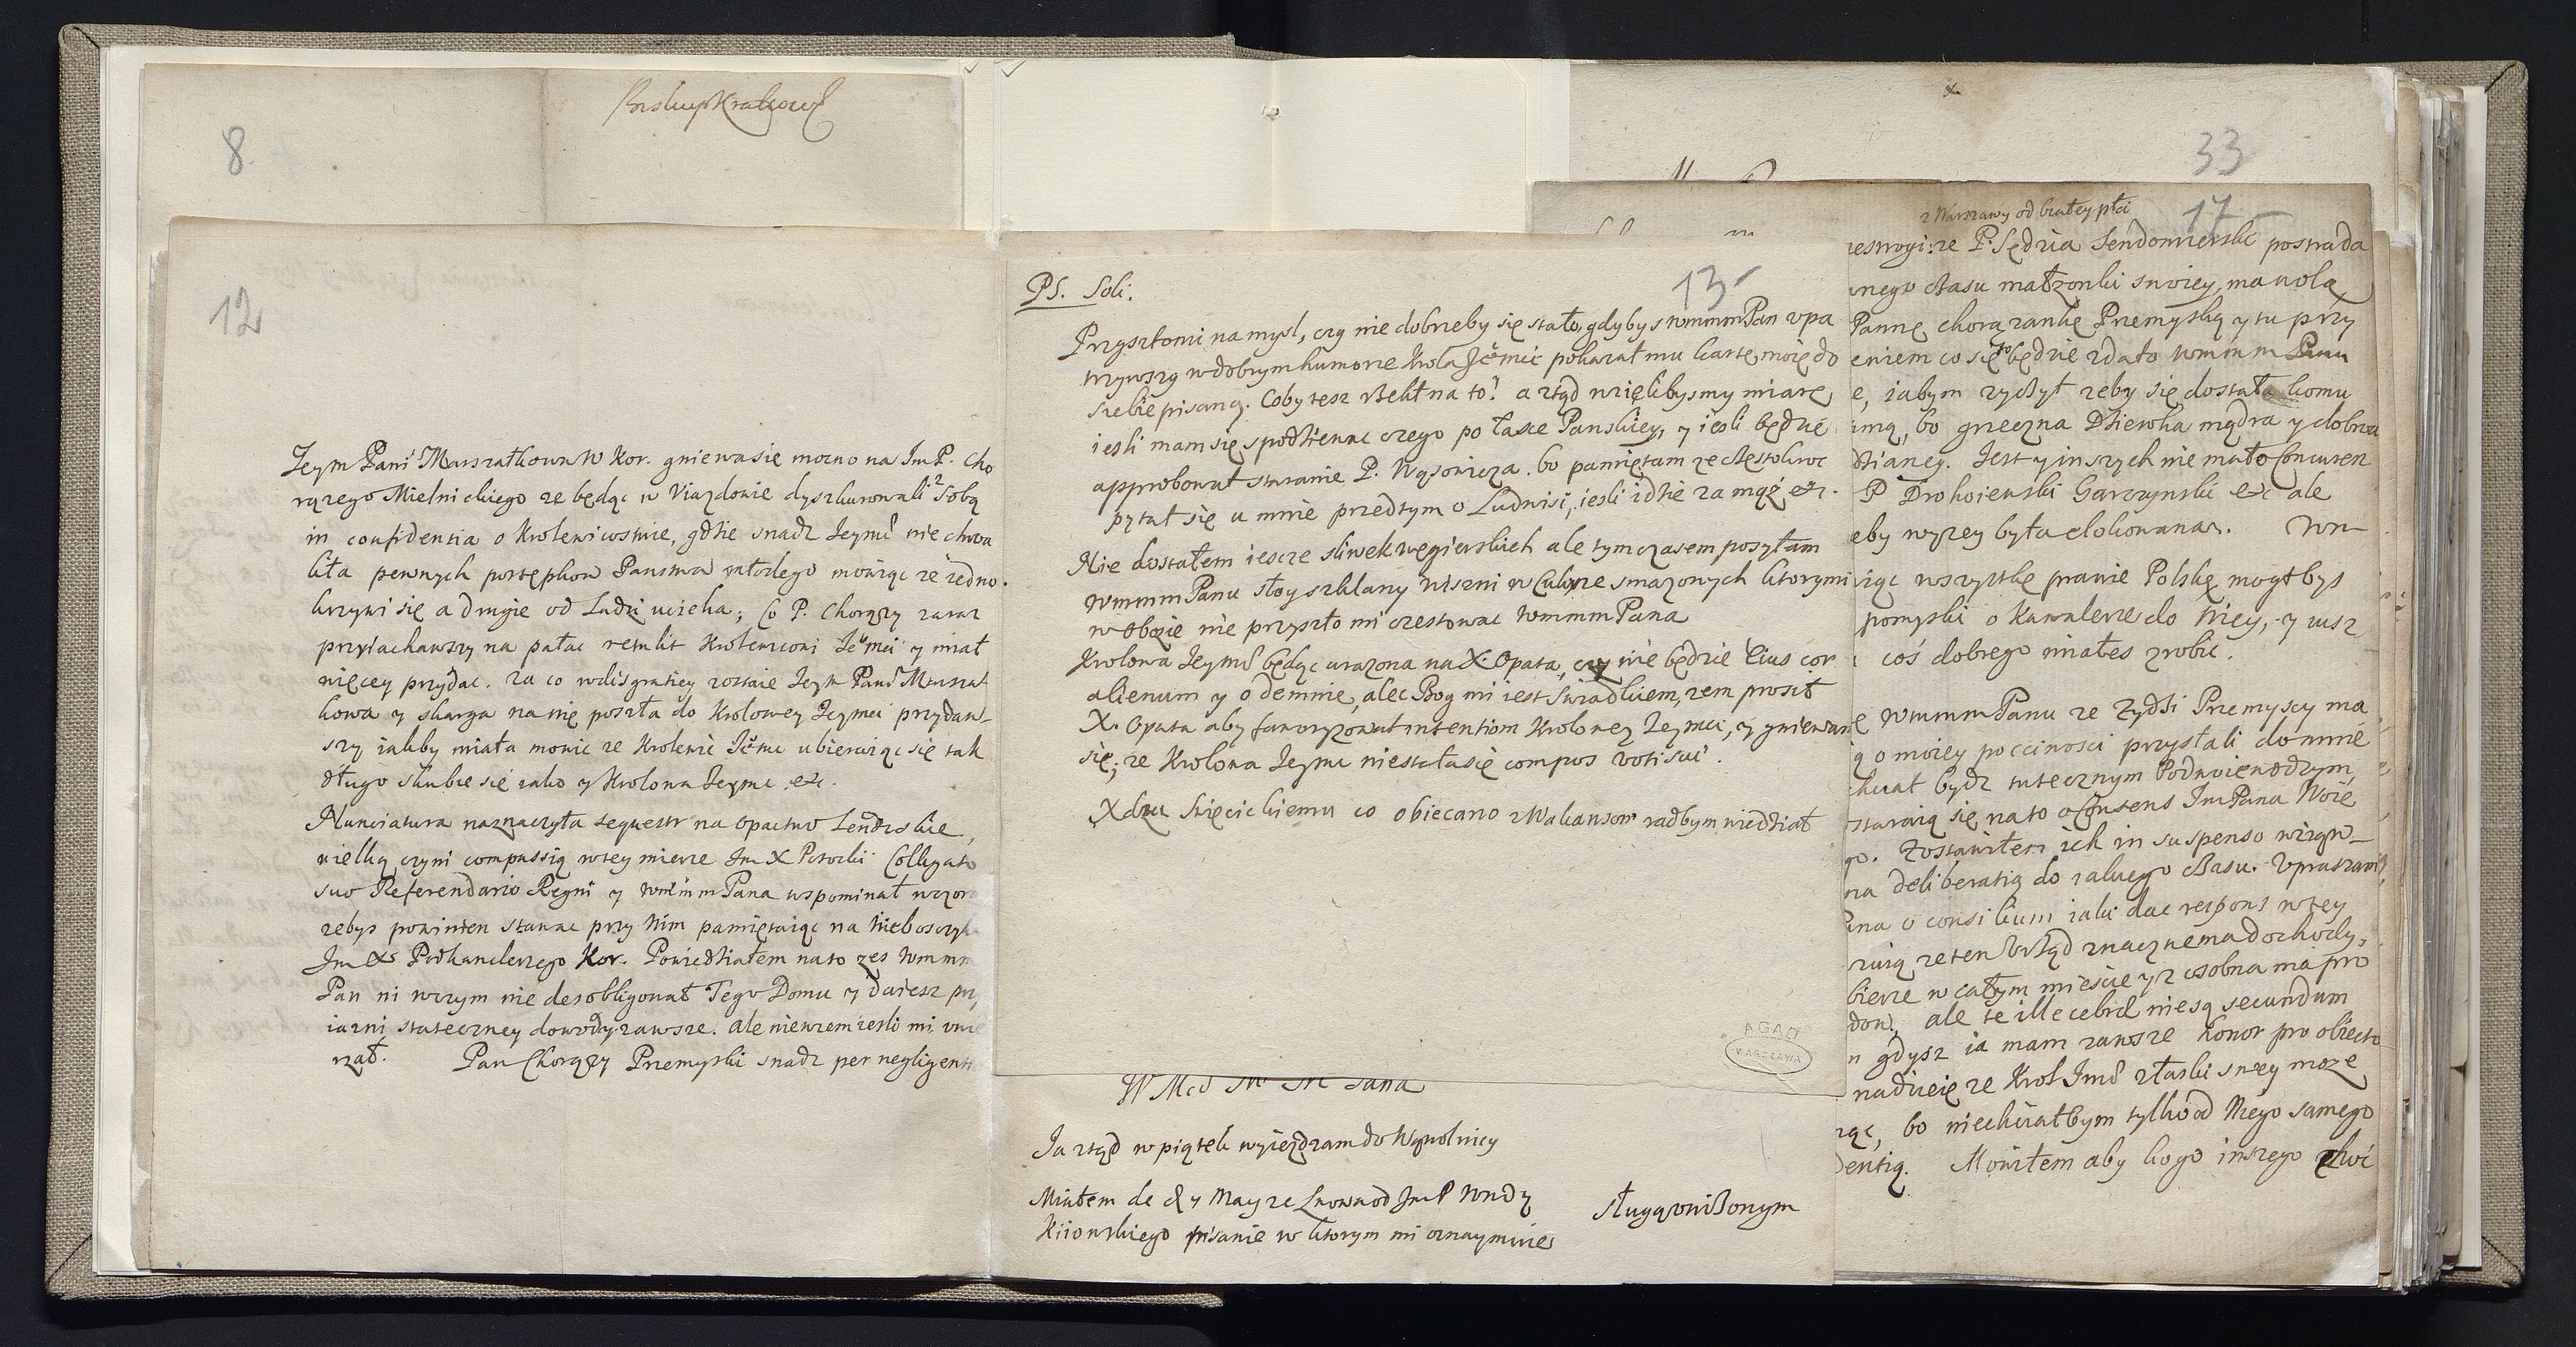 Biskup Krakows
8.
12
Jeym Pani Marszałkowa W Kor. gniewa się mocno na Im P. Cho
rązego Mielnickiego ze będąc w Viazdowie dyszkurowali z Sobą
in confidentia o Krolewicostwie, gdzie snadz Jeymć nie chwa
liła pewnych postępkow Panstwa młodego mowiąc ze jedno
krzywi się a drugie od Ludzi ucieka; Co P. Chorązy zaraz
przyiachawszy na pałac retulit Krolewicowi Jeomci y miał
więcey przydac. Za co w disgratiey zostaie Jeym Pani Marszał
kowa y skarga na nię poszła do Krolowey Jeymci przydaw-
szy iakby miała mowic ze Krolewic Jeomc ubieraiąc się tak
długo skubie się iako y Krolowa Jeymc, etc.
Nunciatura naznaczyła sequestr na Opactwo Lendzkie,
wielką czyni compassią w tey mierze Im X Potocki Collegato
suo Referendario Regni y wmmm Pana wspominał wczora
zebys powinien stawac przy Nim pamiętaiąc na Nieboszczyka
Im Xs Podkanclerzego Kor. Powiedziałem na to zes Wmmm
Pan ni wczym nie desobligował Tego Domu y daiesz prz
iazni stateczney dowody zawsze. ale niewiem iesli mi
rzał. Pan Chorązy Przemyski snadz per negligent
PS. Soli.
13
Przyszło mi na mysl, czy nie dobrzeby się stało, gdybys wmmm Pan vpa
trzywszy w dobrym humorze Krola Jeomci pokazał mu kartę moię do
siebie pisaną. Coby tesz rzekł na to? a ztąd wzięlibysmy miarę,
iesli mam się spodziewac czego po łasce Panskiey, y iesli będzie
approbował staranie P. Wąsowicza. bo pamiętam ze częstokroc
pytał się u mnie przedtym o Ludwisi, iesli idzie za mąż etc.
Nie dostałem iescze sliwek węgierskich ale tym czasem posyłam
wmmm Panu słoy szklany wiszni w Cukrze smazonych ktorymi
w Obozie nie przyszło mi czestowac wmmm Pana
Krolowa Jeymć będąc urazona na X Opata, czy nie będzie Eius cor
alienum y odemnie, alec Bog mi iest swiadkiem, zem prosił
X. Opata aby faworyzował intentiom Krolowey Jeymci, y gniewam
się, ze Krolowa Jeymc nie stała się compos voti sui.
X dzu Swięcickiemu co obiecano z Wakansow radbym wiedział
AGAD
WARSZAWA
Ja ztąd w piątek wyiezdzam do Wąwolnicy
Miałem de 8 y May ze Lwowa od Im P Wndy
Kiiowskiego pisanie w ktorym mi oznaymuie
sługą vnizonym
33
17
z Warszawy od białey płci
estrogi: ze P. Sędzia Sendomierski postrada
wnego czasu małzonki swoiey, ma wolą
Pannę chorązankę Przemyską y tu przy
eniem co się to będzie zdało wmmm Panu
e, iabym zyczył zeby się dostała komu
imą, bo grzeczna Dziewka mądra y dobrze
dzianey. Jest y inszych nie mało Concurren
P Drohoiewski Garczynski etc ale
eby wyzey była clokowana. Wm
iąc wszystkę prawie Polskę mogłbys
pomysli o Kawalerze do Niey, y iusz
coś dobrego miałes zrobic.
wmmm Panu ze Zydzi Przemyscy ma
ą o moiey poczciwosci przysłali do mnie
chciał bydz tutecznym Podwoiewodzym,
staraią się na to o Consens Im Pana Woie
go. Zostawiłem ich in suspenso wziąw-
na deliberatią do całuego czasu. Vpraszam
ana o consilium iaki dac respons w tey
ruią ze ten Vrząd znaczne ma dochody,
bierze w całym miescie y z osobna ma pro
dow, ale te illecebræ nie są secundum
n gdysz ia mam zawsze honor pro obiecto
nadzieię ze Krol Jmć z łaski swey moze
rąc, bo niechciałbym tylko od Niego samego
dentią. Mowiłem aby kogo inszego choc